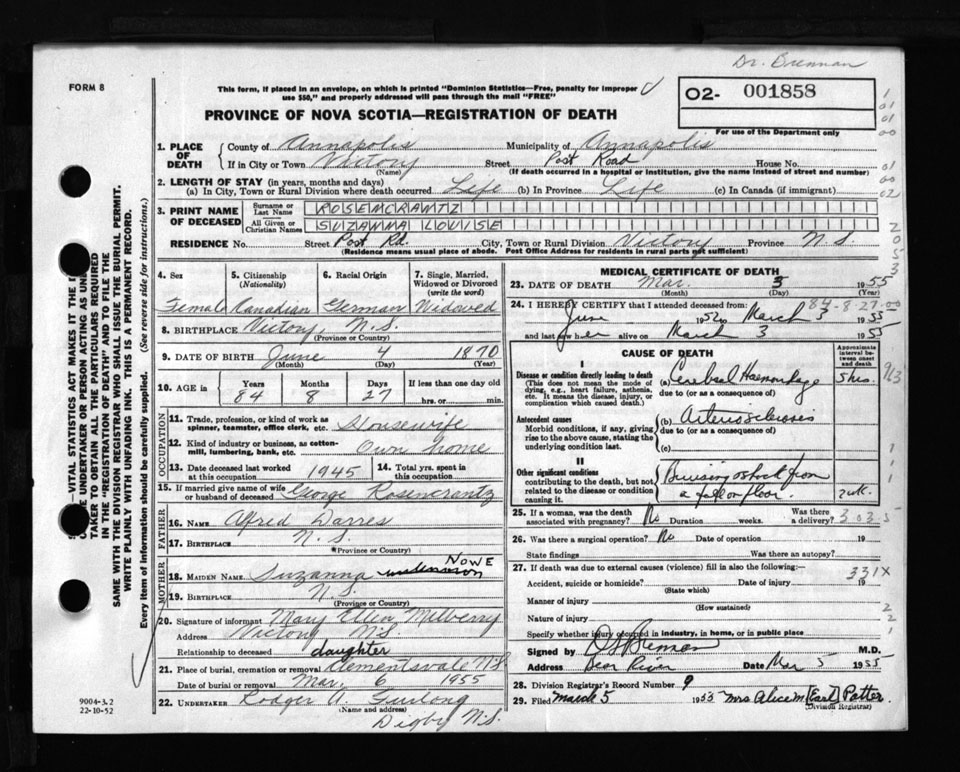 Dr. Brennan
FORM 8
This form, if placed in an envelope, on which is printed "Dominion Statistics—Free, penalty for improper
use $50," and properly addressed will pass through the mail "FREE"
O2- 001858
For use of the Department only
PROVINCE OF NOVA SCOTIA—REGISTRATION OF DEATH
1. PLACE OF DEATH County of Annapolis Municipality of Annapolis
If in City or Town Victory Street Post Road House No.
(Name) (If death occurred in a hospital or institution, give the name instead of street and number)
2. LENGTH OF STAY (in years, months and days)
(a) In City, Town or Rural Division where death occurred Life (b) In Province Life (c) In Canada (if immigrant)
3. PRINT NAME OF DECEASED
Surname or Last Name ROSEMCRANTZ
All Given or Christian Names SUZANNA LOUISE
RESIDENCE No. Street Post Rd. City, Town or Rural Division Victory Province N.S.
(Residence means usual place of abode. Post Office Address for residents in rural parts not sufficient)
4. Sex Female
5. Citizenship (Nationality) Kanadian
6. Racial Origin German
7. Single, Married, Widowed or Divorced (write the word) Widowed
8. BIRTHPLACE Victory, N.S.
(Province or Country)
9. DATE OF BIRTH June 4 1870
(Month) (Day) (Year)
10. AGE in Years Months Days If less than one day old
84 8 27 hrs. or min.
OCCUPATION
11. Trade, profession, or kind of work as spinner, teamster, office clerk, etc. Housewife
12. Kind of industry or business, as cotton-mill, lumbering, bank, etc. Own home
13. Date deceased last worked at this occupation 1945 14. Total yrs. spent in this occupation
15. If married give name of wife or husband of deceased George Rosencrantz
FATHER
16. NAME Alfred Darres
17. BIRTHPLACE N.S.
*Province or Country)
MOTHER
18. MAIDEN NAME Suzanna unknown NOWE
19. BIRTHPLACE N.S.
(Province or Country)
20. Signature of informant Mary Ellen Milberry
Address Victory N.S.
Relationship to deceased daughter
21. Place of burial, cremation or removal Clementsvale N.S
Date of burial or removal Mar. 6 1955
22. UNDERTAKER Rodger W. Furlong
(Name and address)
Digby N.S.
MEDICAL CERTIFICATE OF DEATH
23. DATE OF DEATH Mar. 3 1955
(Month) (Day) (Year)
84-8-27-00
24. I HEREBY CERTIFY that I attended deceased from
June 1952 to March 3 1955
and last saw her alive on March 3 1955
CAUSE OF DEATH
Approximate interval between onset and death
I
Disease or condition directly leading to death
(This does not mean the mode of dying, e.g., heart failure, asthenia, etc. It means the disease, injury, or complication which caused death.)
(a) Cerebral Haemorrhage 5 hrs.
due to (or as a consequence of)
Antecedent causes
Morbid conditions, if any, giving rise to the above cause, stating the underlying condition last.
(b) Arteriosclerosis
due to (or as a consequence of)
(c)
II
Other significant conditions
contributing to the death, but not related to the disease or condition causing it.
Bruising & shock from
a fall on floor. 2 wk.
25. If a woman, was the death associated with pregnancy? No Duration weeks. Was there a delivery?
303.5
26. Was there a surgical operation? No Date of operation 19
State findings Was there an autopsy?
27. If death was due to external causes (violence) fill in also the following:—
331X
Accident, suicide or homicide? Date of injury 19
(State which)
Manner of injury
(How sustained)
Nature of injury
Specify whether injury occurred in industry, in home, or in public place
Signed by Brennan M.D.
Address Bear River Date Mar 5 1955
28. Division Registrar's Record Number 9
29. Filed March 5 1955 Mrs Alice M (Earl) Potter
(Division Registrar)
TAKER TO OBTAIN ALL THE PARTICULARS REQUIRED
IN THE "REGISTRATION OF DEATH" AND TO FILE THE
SAME WITH THE DIVISION REGISTRAR WHO SHALL ISSUE THE BURIAL PERMIT.
WRITE PLAINLY WITH UNFADING INK. THIS IS A PERMANENT RECORD.
Every item of information should be carefully supplied. (See reverse side for instructions.)
9004-3.2
22-10-52